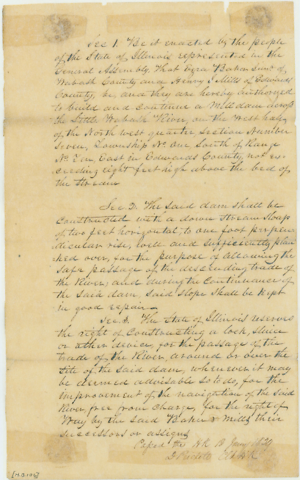 Sec 1. Be it enacted by the people
of the State of Illinois represented in the
General Assembly, That Ezra Baker Junr of
Wabash County and Henry I Mills of Edwards
County, be and they are hereby authorized
to build and continue a Mill dam across
the Little Wabash River, on the West half
of the North west quarter Section Number
Seven, Township No One South of Range
No Ten East in Edwards County, not ex-
ceeding eight feet high above the bed of
the stream
Sec 2. The said dam shall be
constructed with a down stream slope
of two feet horizontal to one foot perpen-
dicular rise, well and sufficiently plan-
ked over, for the purpose of allowing the
safe passage of the descending trade of
the River, and during the Continuance of
the said dam, said slope shall be kept
in good repair.
Sec 3. The State of Illinois reserves
the right of constructing a lock, sluice
or other device, for the passage of the
trade of the River around or over the
site of the said dam, whenever it may
be deemed advisable so to do, for the
improvement of the navigation of the said
River free from charge, for the right of
Way by the said Baker & Mills, their
successors or assigns
the H. R.